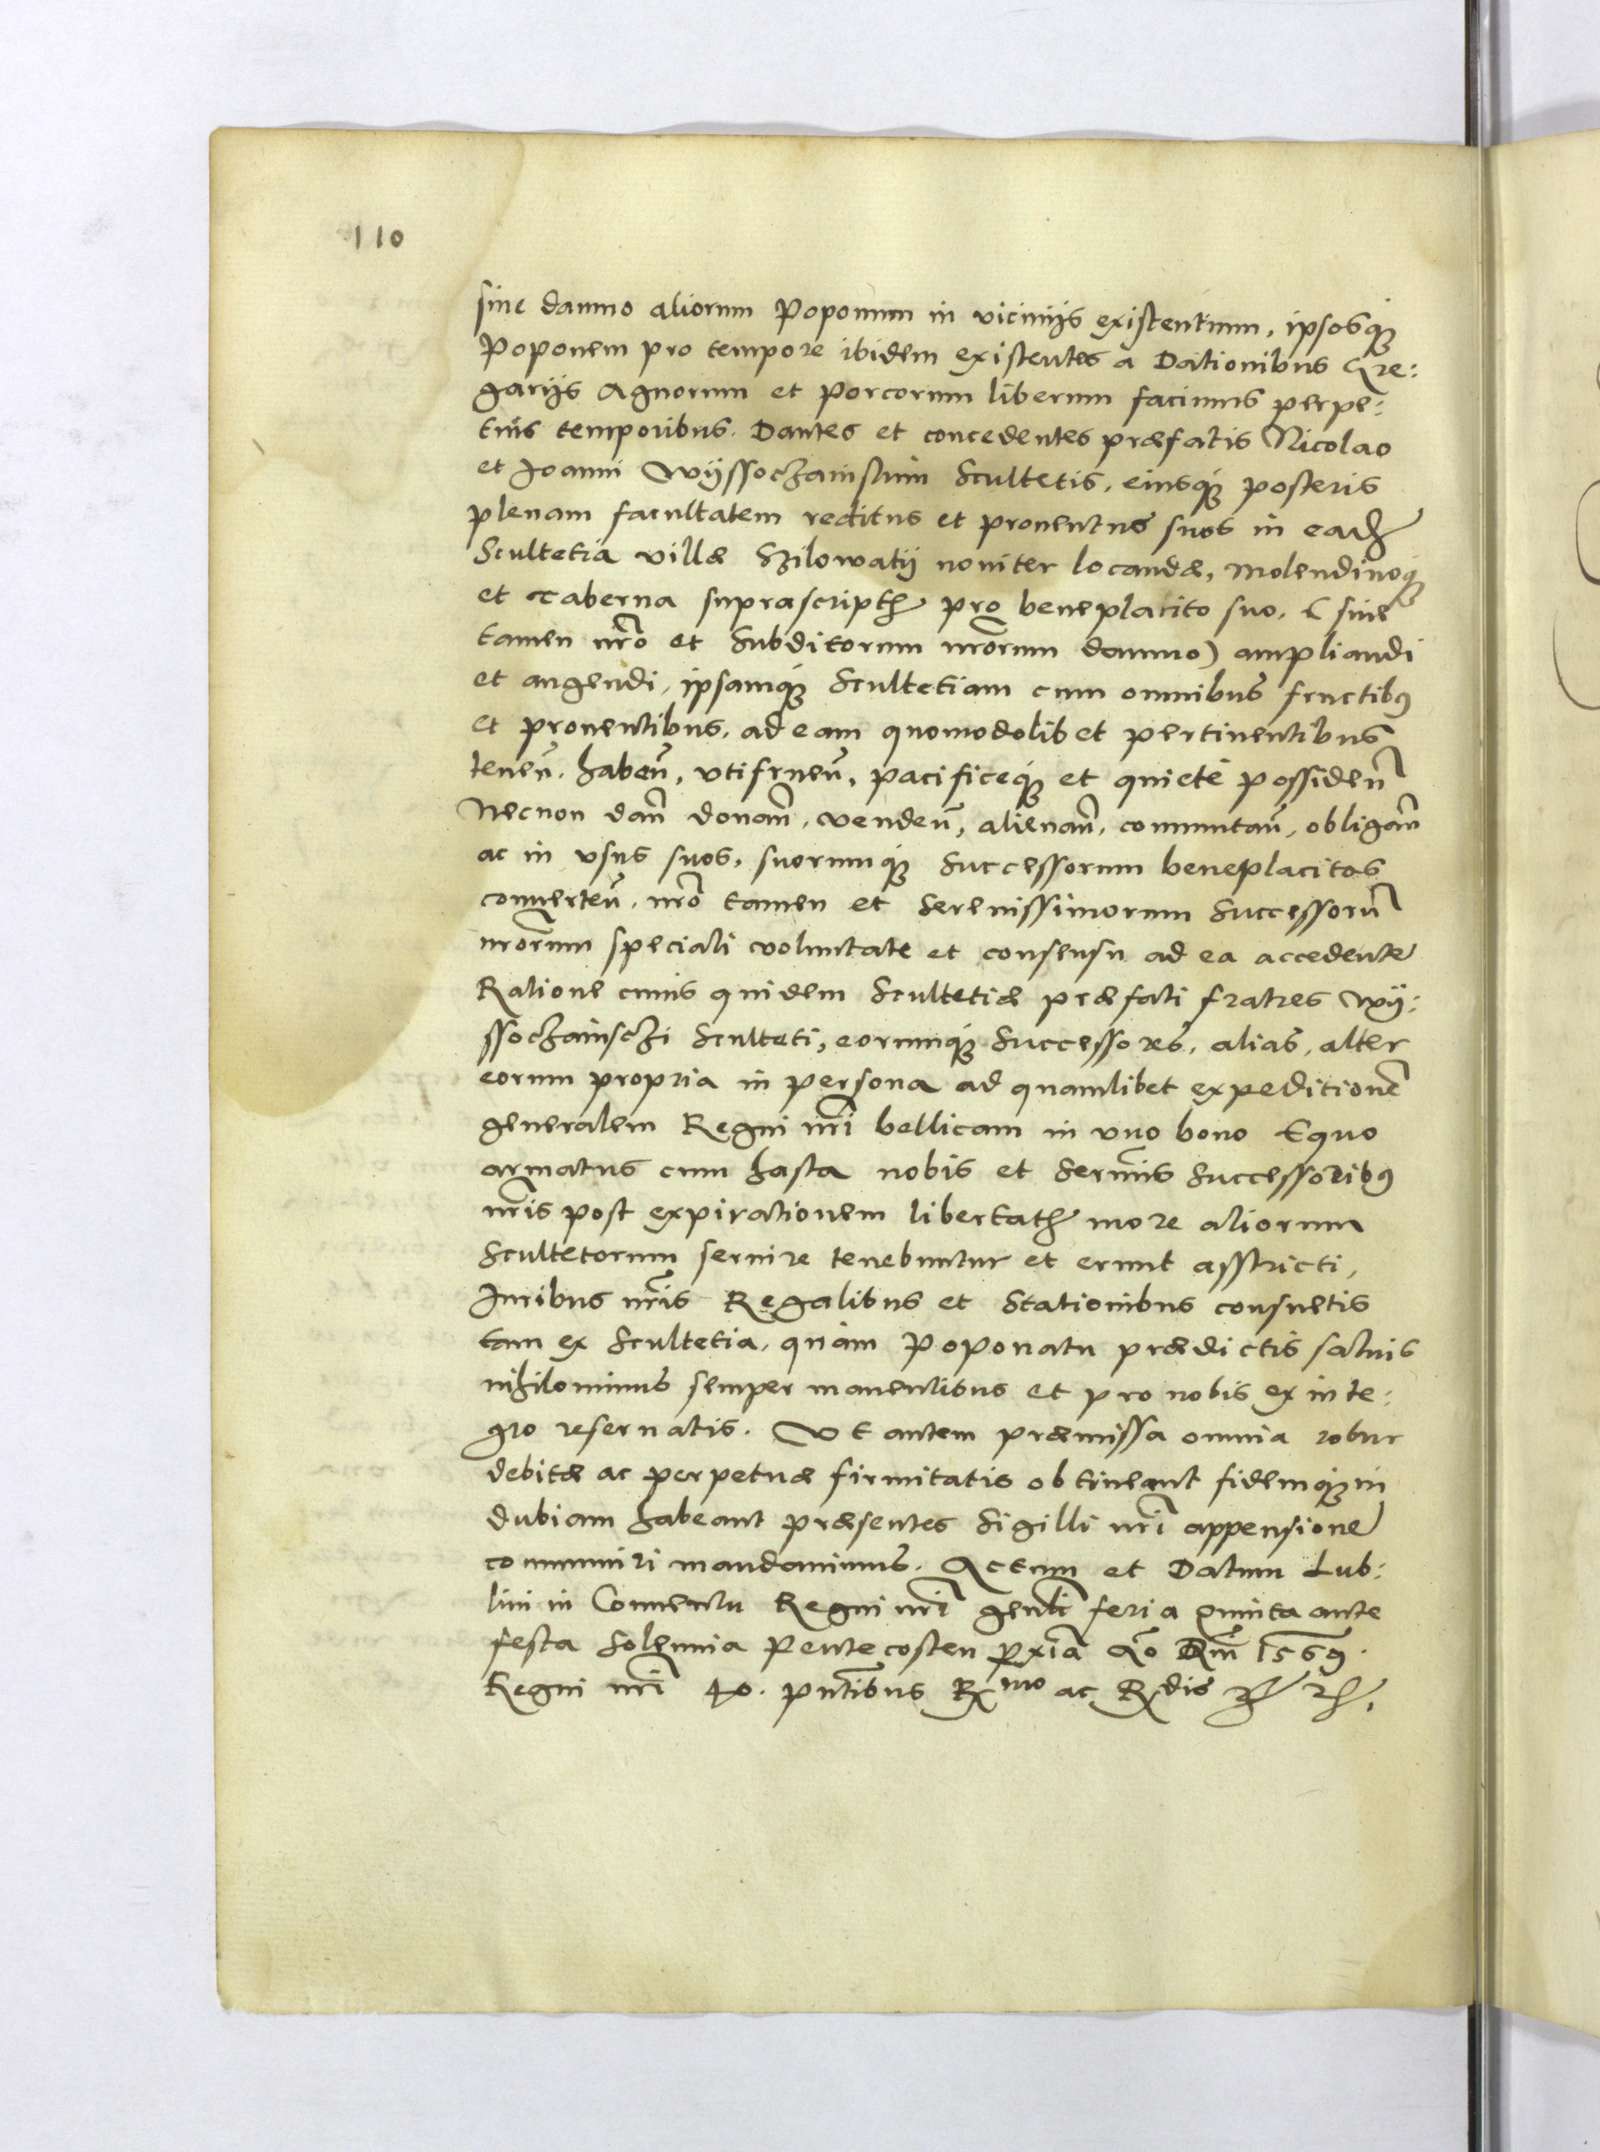 110
sine damno aliorum Poponum in vicinijs existentium, ipsosq́
Poponem pro tempore ibidem existentes a Dationibus Gre:
garijs Agnorum et Porcorum liberum facimus perpe:
tuis temporibus. Dantes et concedentes præfatis Nicolao
et Joanni Scultetis, eiusq́ posteris
plenam facultatem reditus et prouentus suos in ead
Scultetia villæ noniter locandæ, Molendinoq́
et Taberna suprascript pro beneplacito suo. (sine
tamen nr̃o et Subditorum nr̃orum damno) ampliandi
et augendi, ipsamq́ Scultetiam cum omnibus fructibꝰ
et prouentibus, ad eam quomodolibet pertinentibus
teneñ. habeñ, vtifrueñ, pacificeq́ et quietè possideñ
Necnon dañ donañ, vendeñ, alienañ, commutañ, obligañ
ac in vsus suos, suorumq́ Successorum beneplacitos
conuerteñ. nr̃o tamen et Serenissimorum Successorũ
nr̃orum speciali voluntate et consensu ad ea accedente
Ratione cuius quidem Scultetiæ præfati fratres Wÿ:
ssochainschi Sculteti, eorumq́ Successores, alias, alter
eorum propria in persona ad quamlibet expeditionẽ
generalem Regni nr̃i bellicam in vno bono Equo
armatus cum hasta nobis et Sermĩs Successoribꝰ
nr̃is post expirationem libertat more aliorum
Scultetorum seruire tenebuntur et erunt asstricti,
Juribus nr̃is Regalibus et Stationibus consuetis
tam ex Scultetia, quàm Poponatu prædictis saluis
nihilominus semper manentibus et pro nobis ex inte:
gro reseruatis. Vt autem præmissa omnia robur
debitæ ac perpetuæ firmitatis obtineant fidemq́ in
dubiam habeant præsentes Sigilli nr̃i appensione
communiri mandauimus. Actum et Datum Lub:
lini in Conuentu Regni nr̃i gen̄li feria Quinta ante
festa Solemnia Pentecosten p̱xĩa Aõ Dñi 1569.
Regni nr̃i 40. pñtibus Rmo ac Rdis